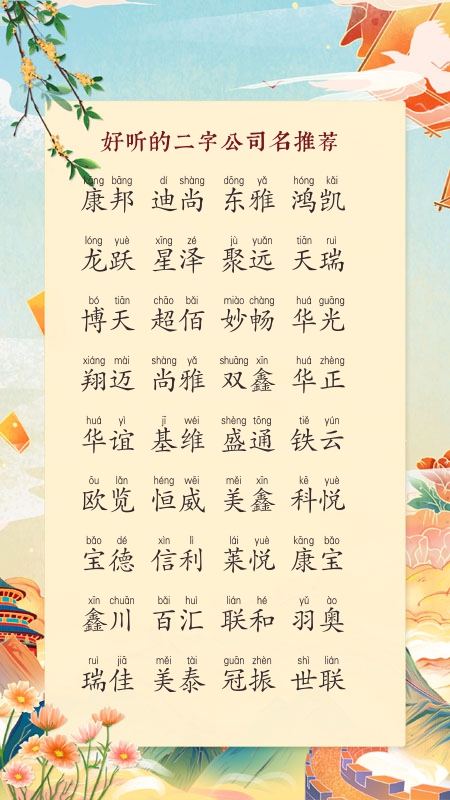 好听的二字公司名推荐
kāng bāng dí shàng dōng yǎ hóng kǎi
康邦 迪尚 东雅 鸿凯
lóng yuè xīng zé jù yuǎn tiān ruì
龙跃 星泽 聚远 天瑞
bó tiān chāo bǎi miào chàng huá guāng
博天 超佰 妙畅 华光
xiáng mài shàng yǎ shuāng xīn huá zhèng
翔迈 尚雅 双鑫 华正
huá yì jī wéi shèng tōng tiě yún
华谊 基维 盛通 铁云
ōu lǎn héng wēi měi xīn kē yuè
欧览 恒威 美鑫 科悦
bǎo dé xìn lì lái yuè kāng bǎo
宝德 信利 莱悦 康宝
xīn chuān bǎi huì lián hé yǔ ào
鑫川 百汇 联和 羽奥
ruì jiā měi tài guān zhèn shì lián
瑞佳 美泰 冠振 世联